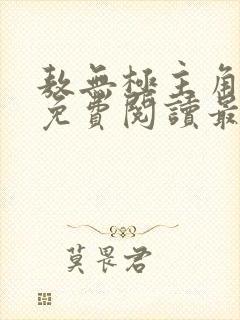 敖無極主角
免費閱讀最
莫畏君